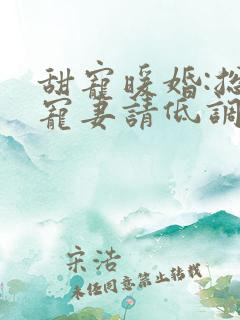 甜寵暖婚:
寵妻請低調
宋浩
未經同意禁止轉載